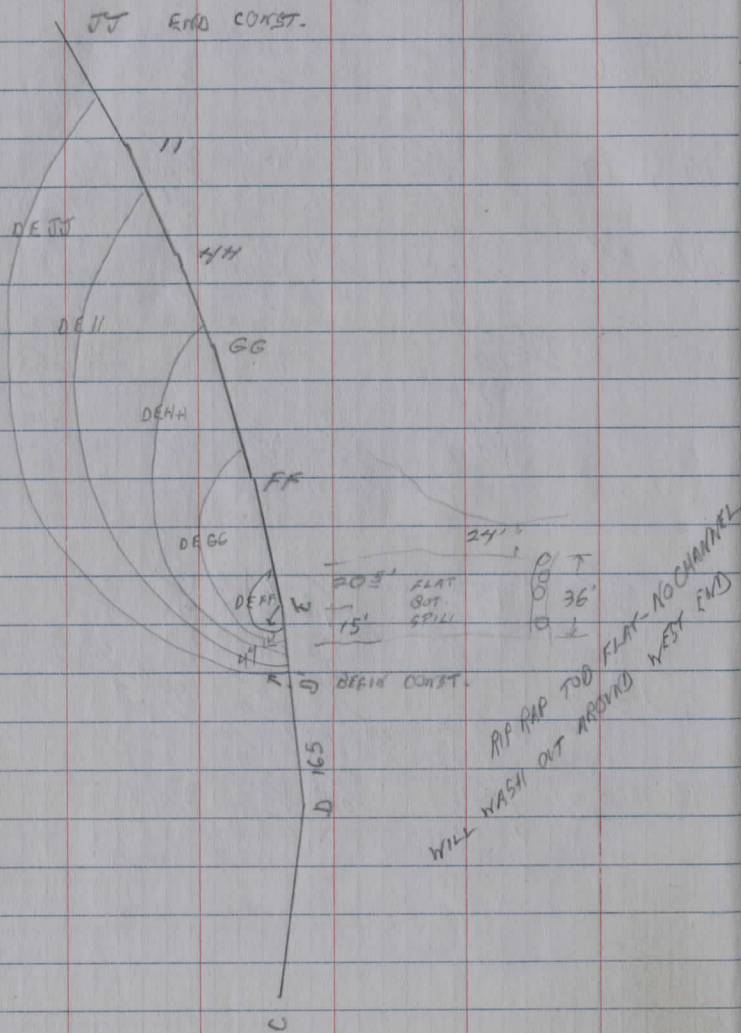 JJ END CONST.
II
DE JJ
HH
DE II
GG
DE HH
FF
24'
DE GG
20.5' FLAT
DE FF
E
BOT.
36'
15'
SPILL
D' BEGIN CONST.
RIP RAP TOO FLAT - NO CHANNEL
WILL WASH OUT AROUND WEST END
165
D
C